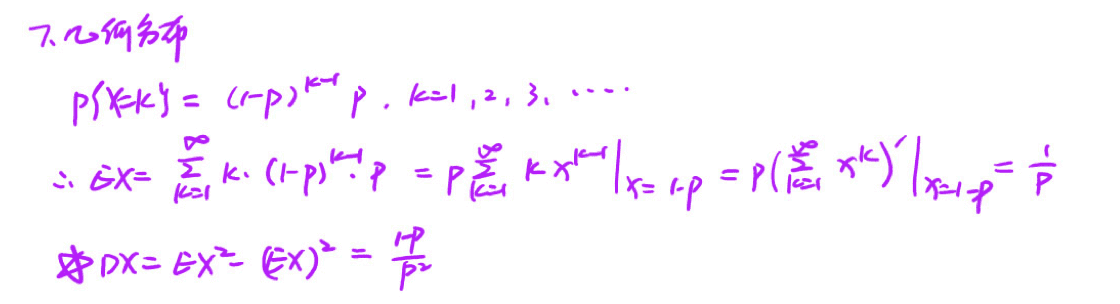 7. 几何分布
P{X=k} = (1-p)^{k-1} p. k=1, 2, 3, ……
∴ EX = \sum_{k=1}^{∞} k·(1-p)^{k-1}·p = p \sum_{k=1}^{∞} k x^{k-1} |_{x=1-p} = p (\sum_{k=1}^{∞} x^k)' |_{x=1-p} = \frac{1}{p}
DX = EX^2 - (EX)^2 = \frac{1-p}{p^2}